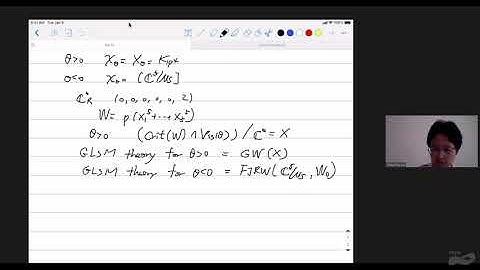 θ>0 𝒳_θ = X_θ = K_{ℙ⁴}
θ<0 𝒳_θ = [ℂ⁵/μ₅]
ℂ*_R (0,0,0,0,0,2)
W = p(x₁⁵+⋯+x₅⁵)
θ>0 (Crit(W) ∩ V^{ss}(θ)) / ℂ* = X
GLSM theory for θ>0 = GW(X)
GLSM theory for θ<0 = FJRW(ℂ⁵/μ₅, W₀)